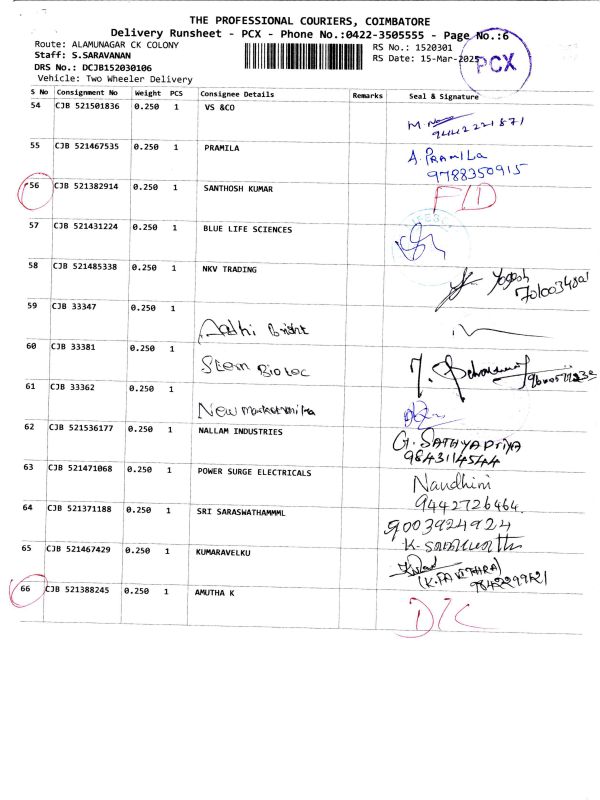 THE PROFESSIONAL COURIERS, COIMBATORE
Delivery Runsheet - PCX - Phone No.:0422-3505555 - Page No.:6
Route: ALAMUNAGAR CK COLONY
RS No.: 1520301
Staff: S.SARAVANAN
RS Date: 15-Mar-2025
PCX
DRS No.: DCJB152030106
Vehicle: Two Wheeler Delivery
S No Consignment No Weight PCS Consignee Details Remarks Seal & Signature
54 CJB 521501836 0.250 1 VS &CO
9442221871
55 CJB 521467535 0.250 1 PRAMILA A. PRAMILA
9788350915
56 CJB 521382914 0.250 1 SANTHOSH KUMAR
57 CJB 521431224 0.250 1 BLUE LIFE SCIENCES
58 CJB 521485338 0.250 1 NKV TRADING Yogesh
59 CJB 33347 0.250 1 Aathi Bright
60 CJB 33381 0.250 1 Stem Biotec
61 CJB 33362 0.250 1
62 CJB 521536177 0.250 1 NALLAM INDUSTRIES G. SATHYAPriYA
9843114544
63 CJB 521471068 0.250 1 POWER SURGE ELECTRICALS Nandhini
9442726464
64 CJB 521371188 0.250 1 SRI SARASWATHAMMML 9003924924
65 CJB 521467429 0.250 1 KUMARAVELKU
(K.PAVITHRA)
66 CJB 521388245 0.250 1 AMUTHA K D/C